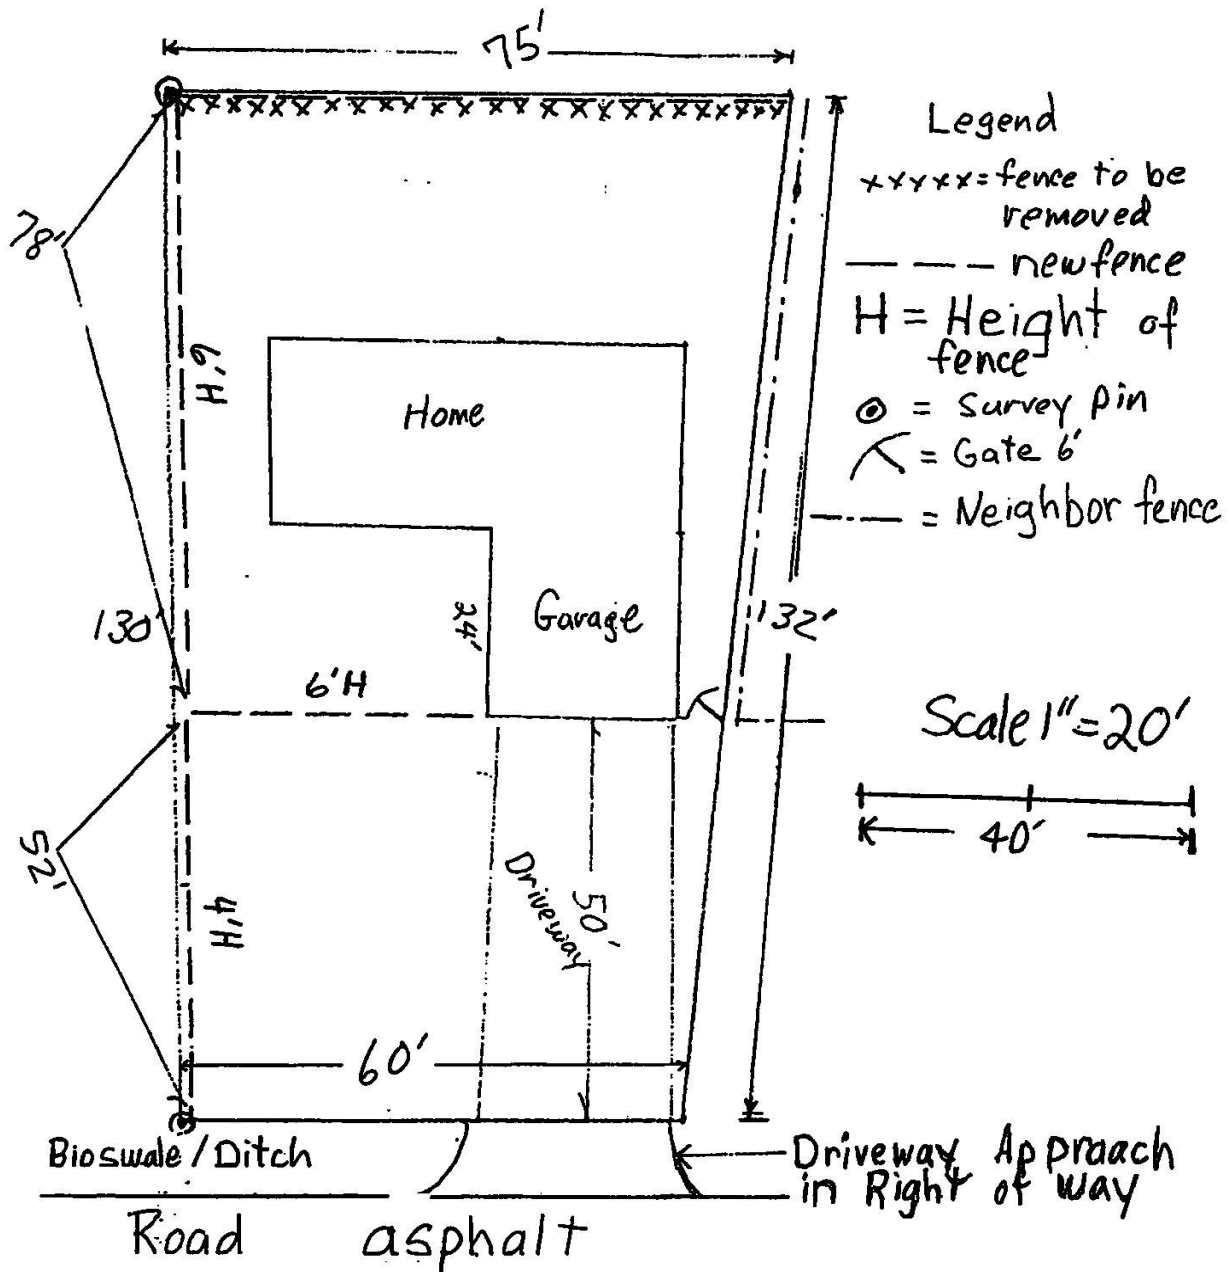 75'
Legend
xxxxx = fence to be
removed
— — — new fence
H = Height of
fence
= Survey pin
= Gate 6'
= Neighbor fence
78'
6'H
Home
130'
24'
Garage
132'
6'H
Scale 1" = 20'
40'
52'
4'H
Driveway
50'
60'
Bioswale/Ditch
Driveway Appraach
in Right of way
Road asphalt